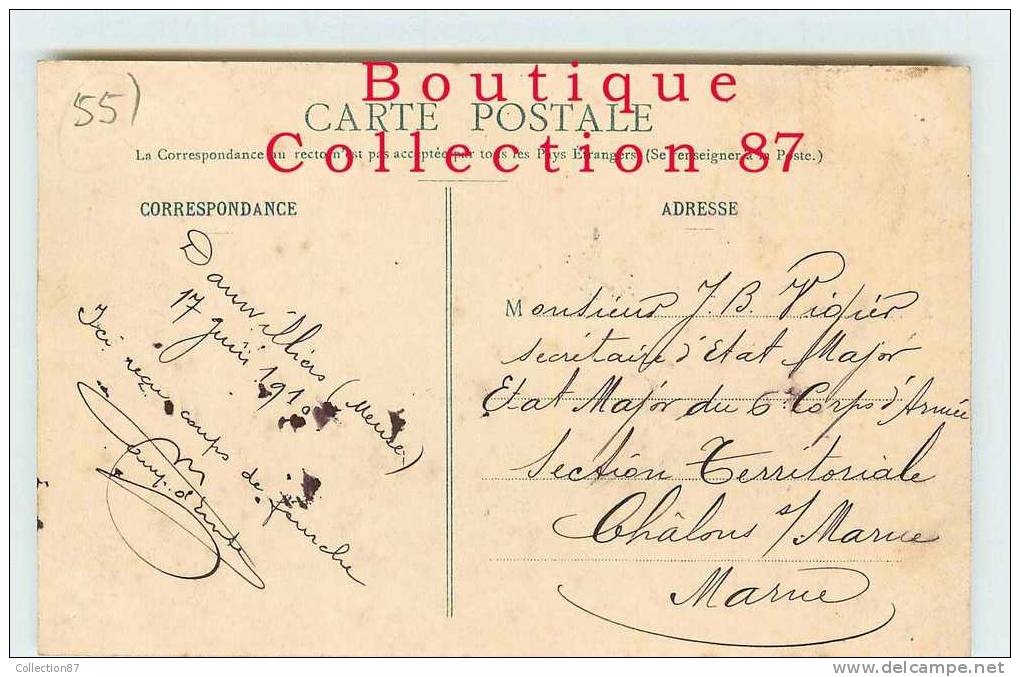 55)
Boutique
CARTE POSTALE
Collection 87
La Correspondance au recto n'est pas acceptée par tous les Pays Étrangers (Se renseigner à la Poste.)
CORRESPONDANCE
ADRESSE
Damvilliers (Meuse)
17 Juin 1910
Ici reçu coups de fourche
Monsieur J. B. Vigier
Secrétaire d'Etat Major
Etat Major du 6e Corps d'Armée
Section Territoriale
Châlons s/ Marne
Marne
Collection87
delcampe.net